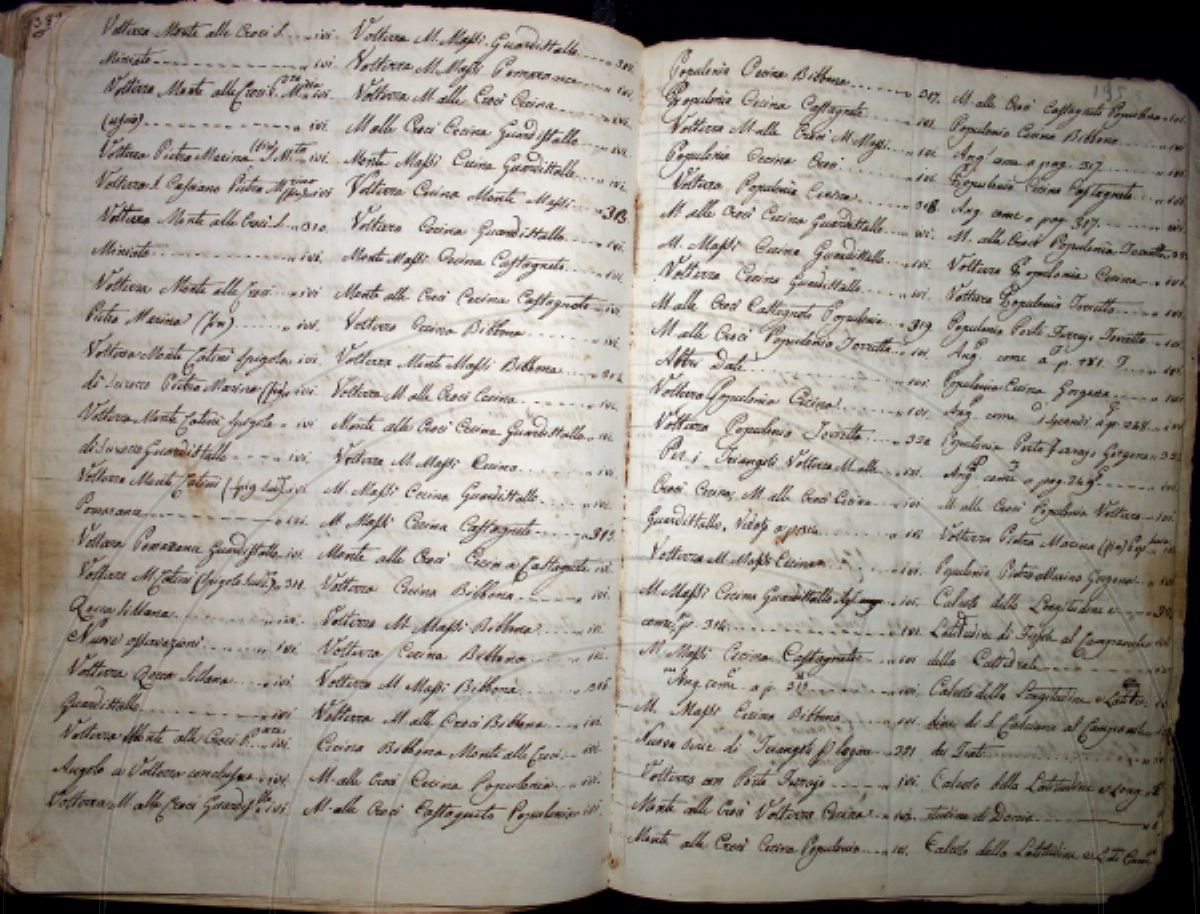 38
Volterra Monte alle Croci S. ivi.
Miniato ivi
Volterra Monte alle Croci ivi.
ivi.
Volterra Pietra Marina ivi.
Volterra S. Casciano Pietra ivi
Volterra Monte alle Croci S. 310.
Miniato ivi.
Volterra Monte alle Croci ivi
Pietra Marina ivi.
Volterra Monte Catini Spigolo ivi.
di Pietra Marina ivi
Volterra Monte Catini Spigolo ivi.
di Guardistallo ivi.
Volterra Monte Catini ivi
Pomarance ivi.
Volterra Pomarance Guardistallo ivi.
Volterra M. Catini 311.
Rocca Sillana ivi.
Nuove osservazioni ivi.
Volterra Rocca Sillana
Guardistallo ivi
Volterra Monte alle Croci ivi.
Angolo a Volterra ivi.
Volterra M. alle Croci ivi
Volterra M. Massi Guardistallo
Volterra M. Massi Pomarance ivi.
Volterra M. alle Croci Cecina ivi.
M. alle Croci Cecina Guardistallo ivi.
Monte Massi Cecina Guardistallo ivi.
Volterra Cecina Monte Massi 313.
Volterra Cecina Guardistallo ivi.
Monte Massi Cecina Castagneto ivi.
Monte alle Croci Cecina Castagneto ivi.
Volterra Cecina Bibbona ivi.
Volterra Monte Massi Bibbona 314.
Volterra M. alle Croci Cecina ivi.
Monte alle Croci Cecina Guardistallo ivi.
Volterra M. Massi Cecina ivi
M. Massi Cecina Guardistallo ivi.
M. Massi Cecina Castagneto 315.
Monte alle Croci Cecina Castagneto ivi.
Volterra Cecina Bibbona ivi.
Volterra M. Massi Bibbona ivi.
Volterra Cecina Bibbona ivi.
Volterra M. Massi Bibbona 316
Volterra M. alle Croci Bibbona ivi.
Cecina Bibbona Monte alle Croci ivi.
M. alle Croci Cecina Populonia ivi.
M. alle Croci Castagneto Populonia ivi.
Populonia Cecina Bibbona 317.
Populonia Cecina Castagneto ivi.
Volterra M. alle Croci M. Massi ivi
Populonia Cecina Croci ivi.
Volterra Populonia Cecina 318.
M. alle Croci Cecina Guardistallo ivi.
M. Massi Cecina Guardistallo ivi.
Volterra Cecina Guardistallo ivi.
M. alle Croci Castagneto Populonia 319
M. alle Croci Populonia Torretta ivi.
Altri Dati ivi
Volterra Populonia Cecina ivi.
Volterra Populonia Torretta 320
Per i Triangoli Volterra M. alle ivi.
Croci Cecina, M. alle Croci Cecina ivi
Guardistallo, ivi
Volterra M. Massi Cecina ivi.
M. Massi Cecina Guardistallo ivi.
come p. 314 ivi
M. Massi Cecina Castagneto ivi
Ang. come a p. ivi.
M. Massi Cecina Bibbona ivi.
Nuova serie di Triangoli legare 321
Volterra con Porto Ferrajo ivi.
Monte alle Croci Volterra Cecina ivi.
Monte alle Croci Cecina Populonia ivi.
195
M. alle Croci Castagneto Populonia ivi.
Populonia Cecina Bibbona ivi
Ang. come a pag. 317 ivi.
Populonia Cecina Castagneto ivi.
Ang. come a pag. 317. ivi.
M. alle Croci Populonia Torretta
Volterra Populonia Cecina ivi.
Volterra Populonia Torretta ivi.
Populonia Porto Ferrajo Torretta ivi.
Ang. come a p. ivi.
Populonia Cecina Gorgona ivi
Ang. come a p. 248 ivi
Populonia Porto Ferrajo Gorgona
Ang. come a pag. 249 ivi.
M. alle Croci Populonia Volterra ivi.
Volterra Pietra Marina
Populonia Pietra Marina Gorgona ivi
Calcolo della Longitudine e
Latitudine di Fiesole al Campanile ivi
della Cattedrale
Calcolo della Longitudine e
dine di S. Casciano al Campanile
dei Frati
Calcolo della Latitudine e Long.
itudine di
Calcolo della Latitudine e